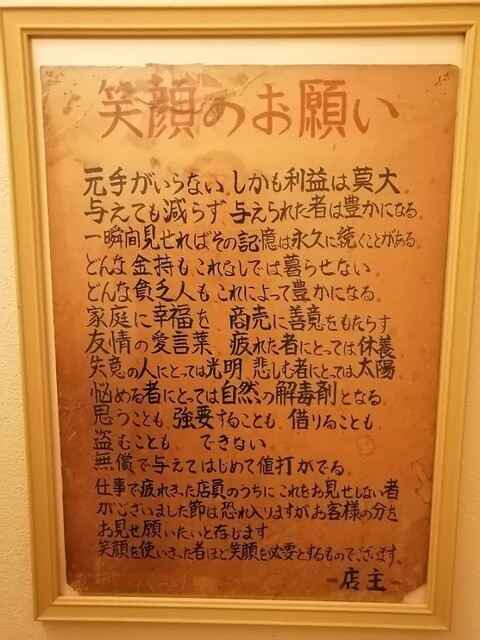 笑顔のお願い
元手がいらない。しかも利益は莫大。
与えても減らず、与えられた者は豊かになる。
一瞬間見せればその記憶は永久に続くことがある。
どんな金持もこれなしでは暮らせない。
どんな貧乏人もこれによって豊かになる。
家庭に幸福を 商売に善意をもたらす
友情の愛言葉。疲れた者にとっては休養
失意の人にとっては光明、悲しむ者にとっては太陽、
悩める者にとっては自然の解毒剤となる。
思うことも、強要することも、借りることも、
盗むことも できない。
無償で与えてはじめて値打がでる。
仕事で疲れきった店員のうちにこれをお見せしない者
がございました節は恐れ入りますがお客様の分を
お見せ願いたいと存じます
笑顔を使いきった者ほど笑顔を必要とするものでございます。
-店主-